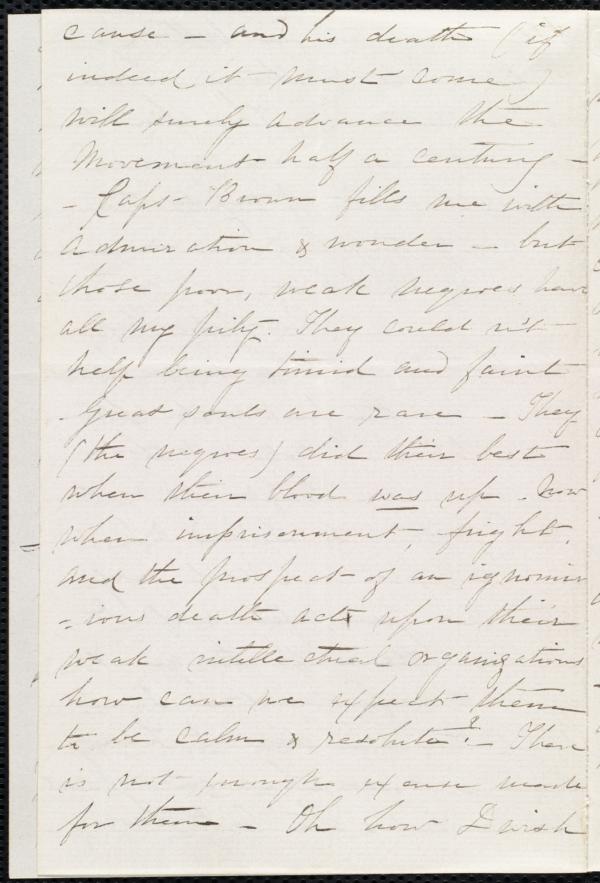 cause – and his death (if
indeed it must come)
will surely advance the
movement half a century –
– Capt Brown fills me with
admiration & wonder – but
those poor, weak negroes have
all my pity. They could n't
help being timid and faint
Great souls are rare – They
(the negroes) did their best
when their blood was up. Now
when imprisonment, fright,
and the prospect of an ignomin
-ious death acts upon their
weak intellectual organizations
how can we expect them
to be calm & resolute? – There
is not enough excuse made
for them – Oh how I wish